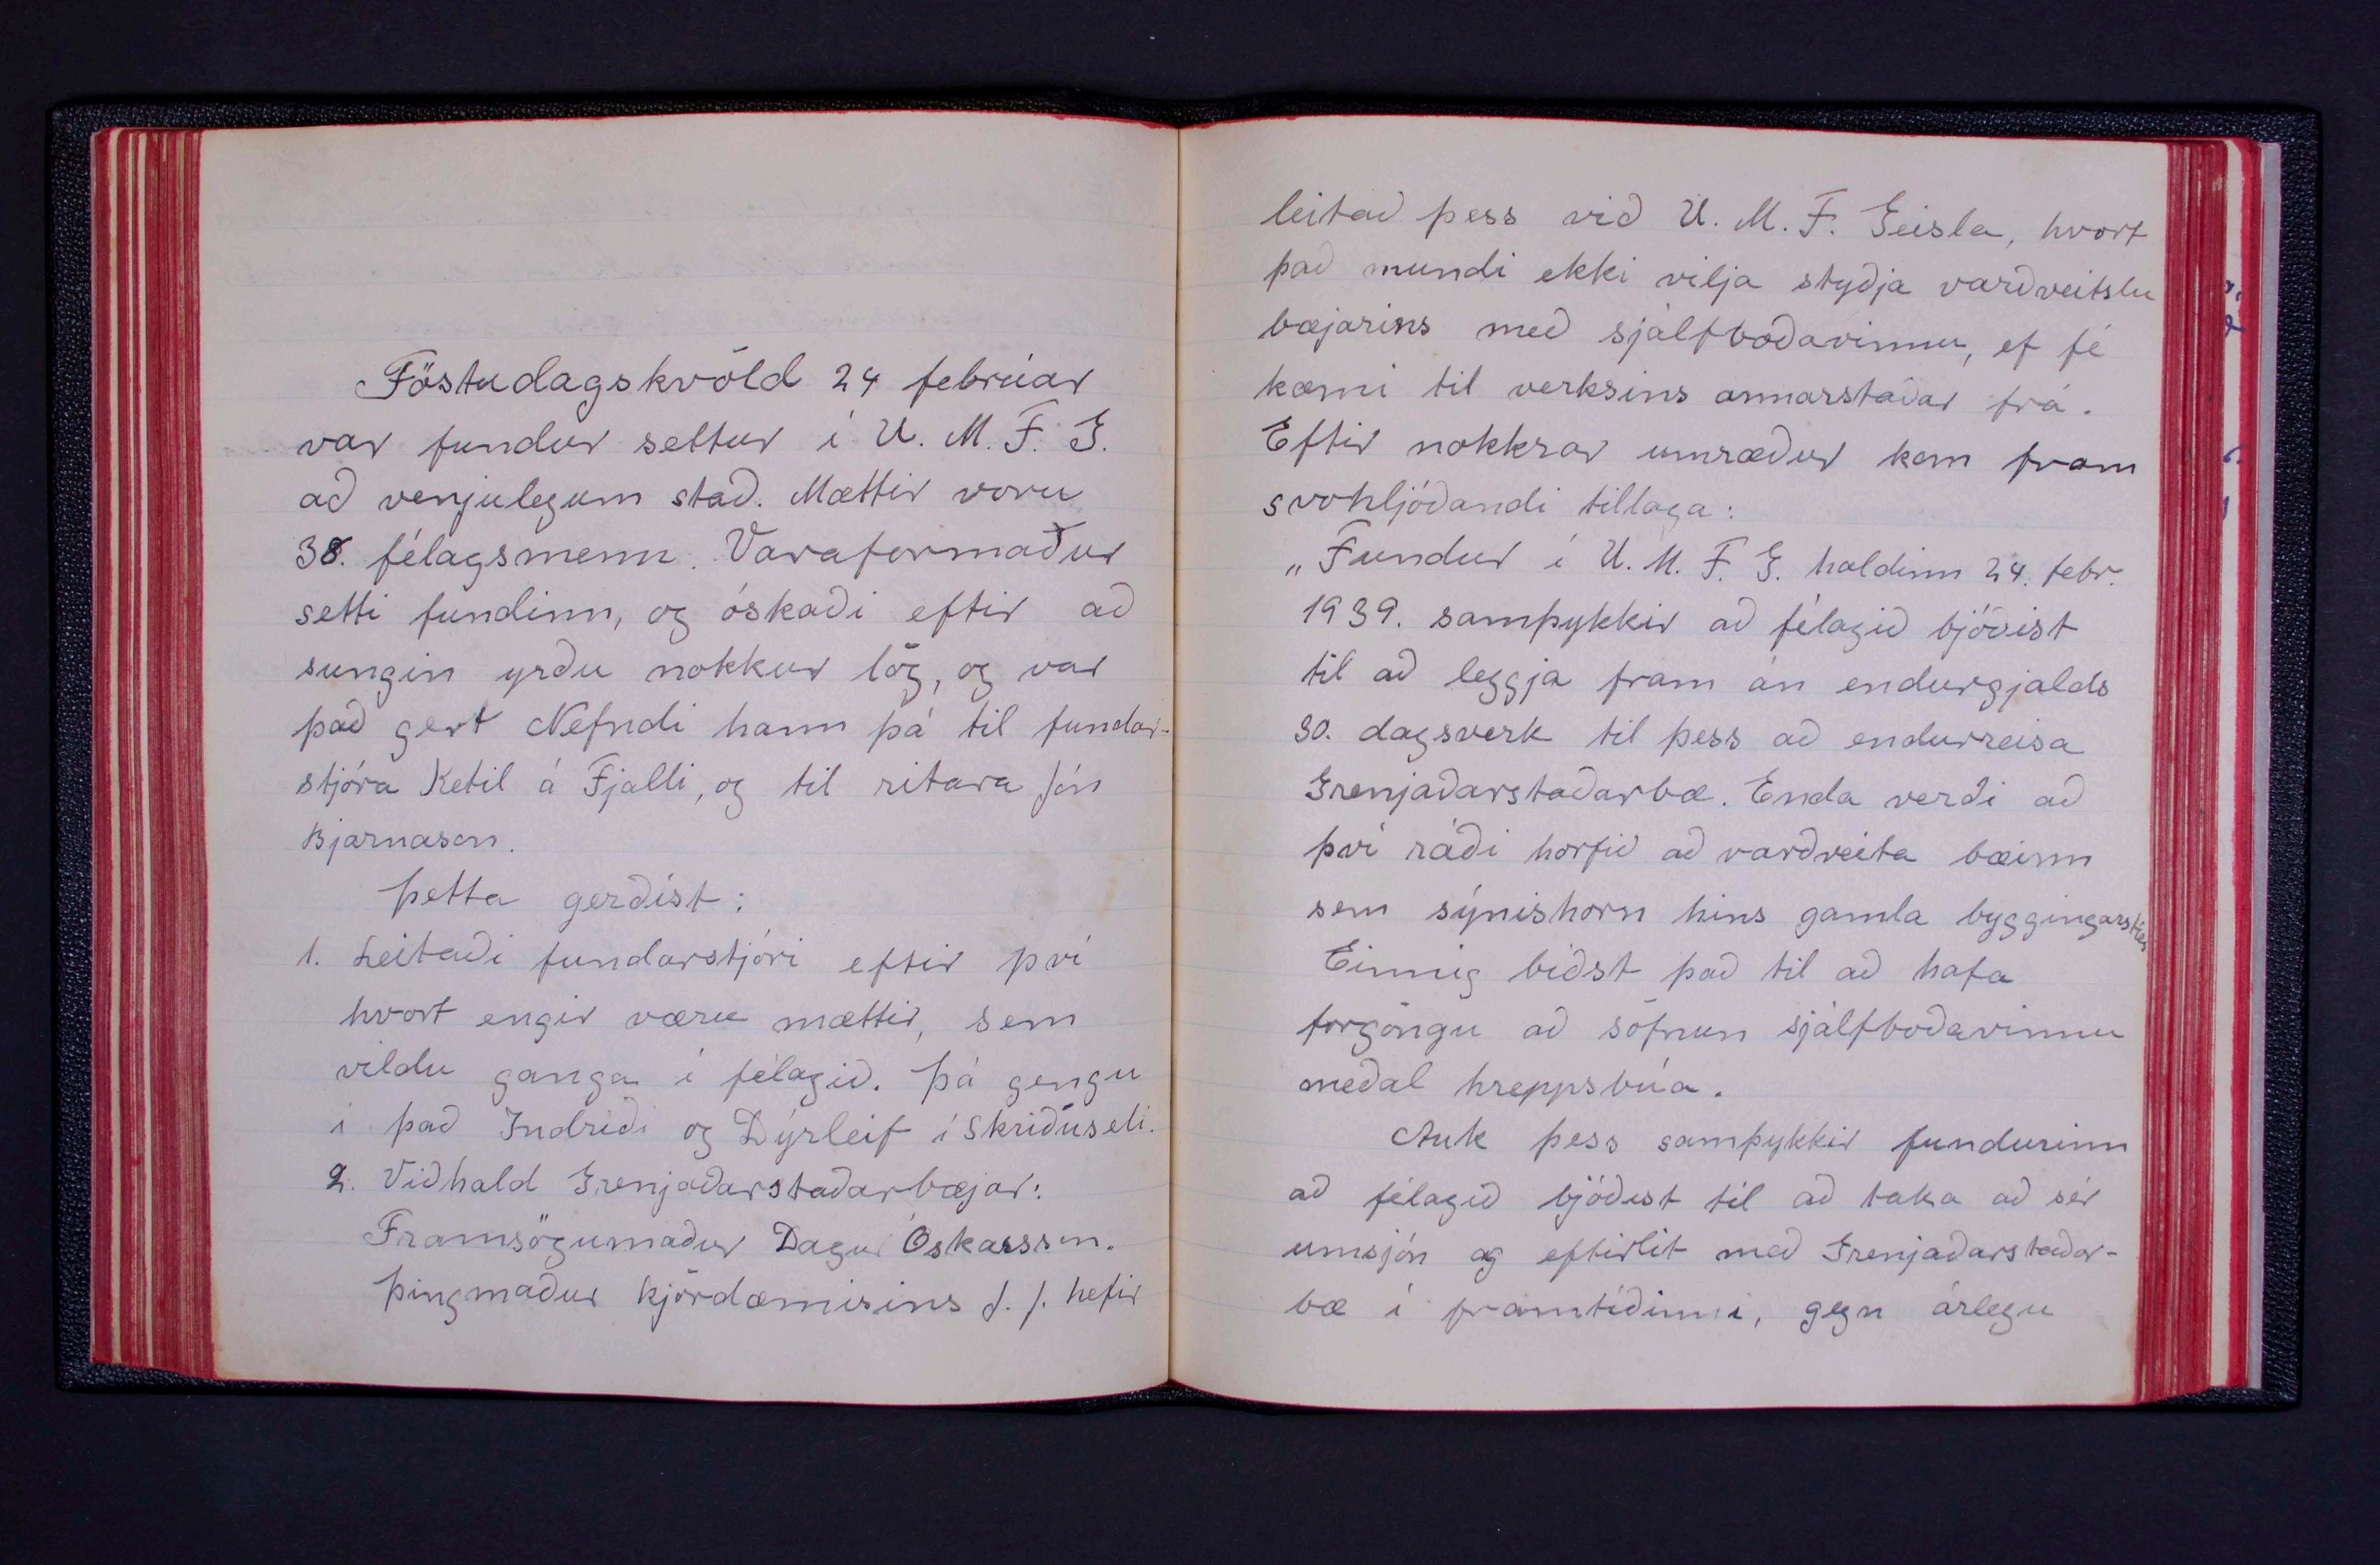 Föstudagskvöld 24 febrúar
var fundur settur í U. M. F. G.
að venjulegum stað. Mættir voru
38. félagsmenn. Varaformaður
setti fundinn, og óskaði eftir að
sungin yrðu nokkur lög, og var
það gert Nefndi hann þá til fundar-
stjóra Ketil á Fjalli, og til ritara Jón
Bjarnason.
Þetta gerðist:
1. Leitaði fundarstjóri eftir því
hvort engir væru mættir, sem
vildu ganga í félagið. Þá gengu
í það Indriði og Dýrleif í Skriðuseli.
2. Viðhald Grenjaðarstaðarbæjar:
Framsögumaður Dagur Óskarsson.
Þingmaður kjördæmisins J. J. hefir
leitað þess við U. M. F. Geisla, hvort
það mundi ekki vilja styðja varðveitslu
bæjarins með sjálfboðavinnu, ef fé
kæmi til verksins annarstaðar frá.
Eftir nokkrar umræður kom fram
svohljóðandi tillaga:
„Fundur í U. M. F. G. haldinn 24. febr.
1939. samþykkir að félagið bjóðist
til að leggja fram án endurgjalds
30. dagsverk til þess að endurreisa
Grenjaðarstaðarbæ. Enda verði að
því ráði horfið að varðveita bæinn
sem sýnishorn hins gamla byggingarstíls
Einnig biðst það til að hafa
forgöngu að söfnun sjálfboðavinnu
meðal hreppsbúa.
Auk þess samþykkir fundurinn
að félagið bjóðist til að taka að sér
umsjón og eftirlit með Grenjaðarstaðar-
bæ í framtíðinni, gegn árlegu